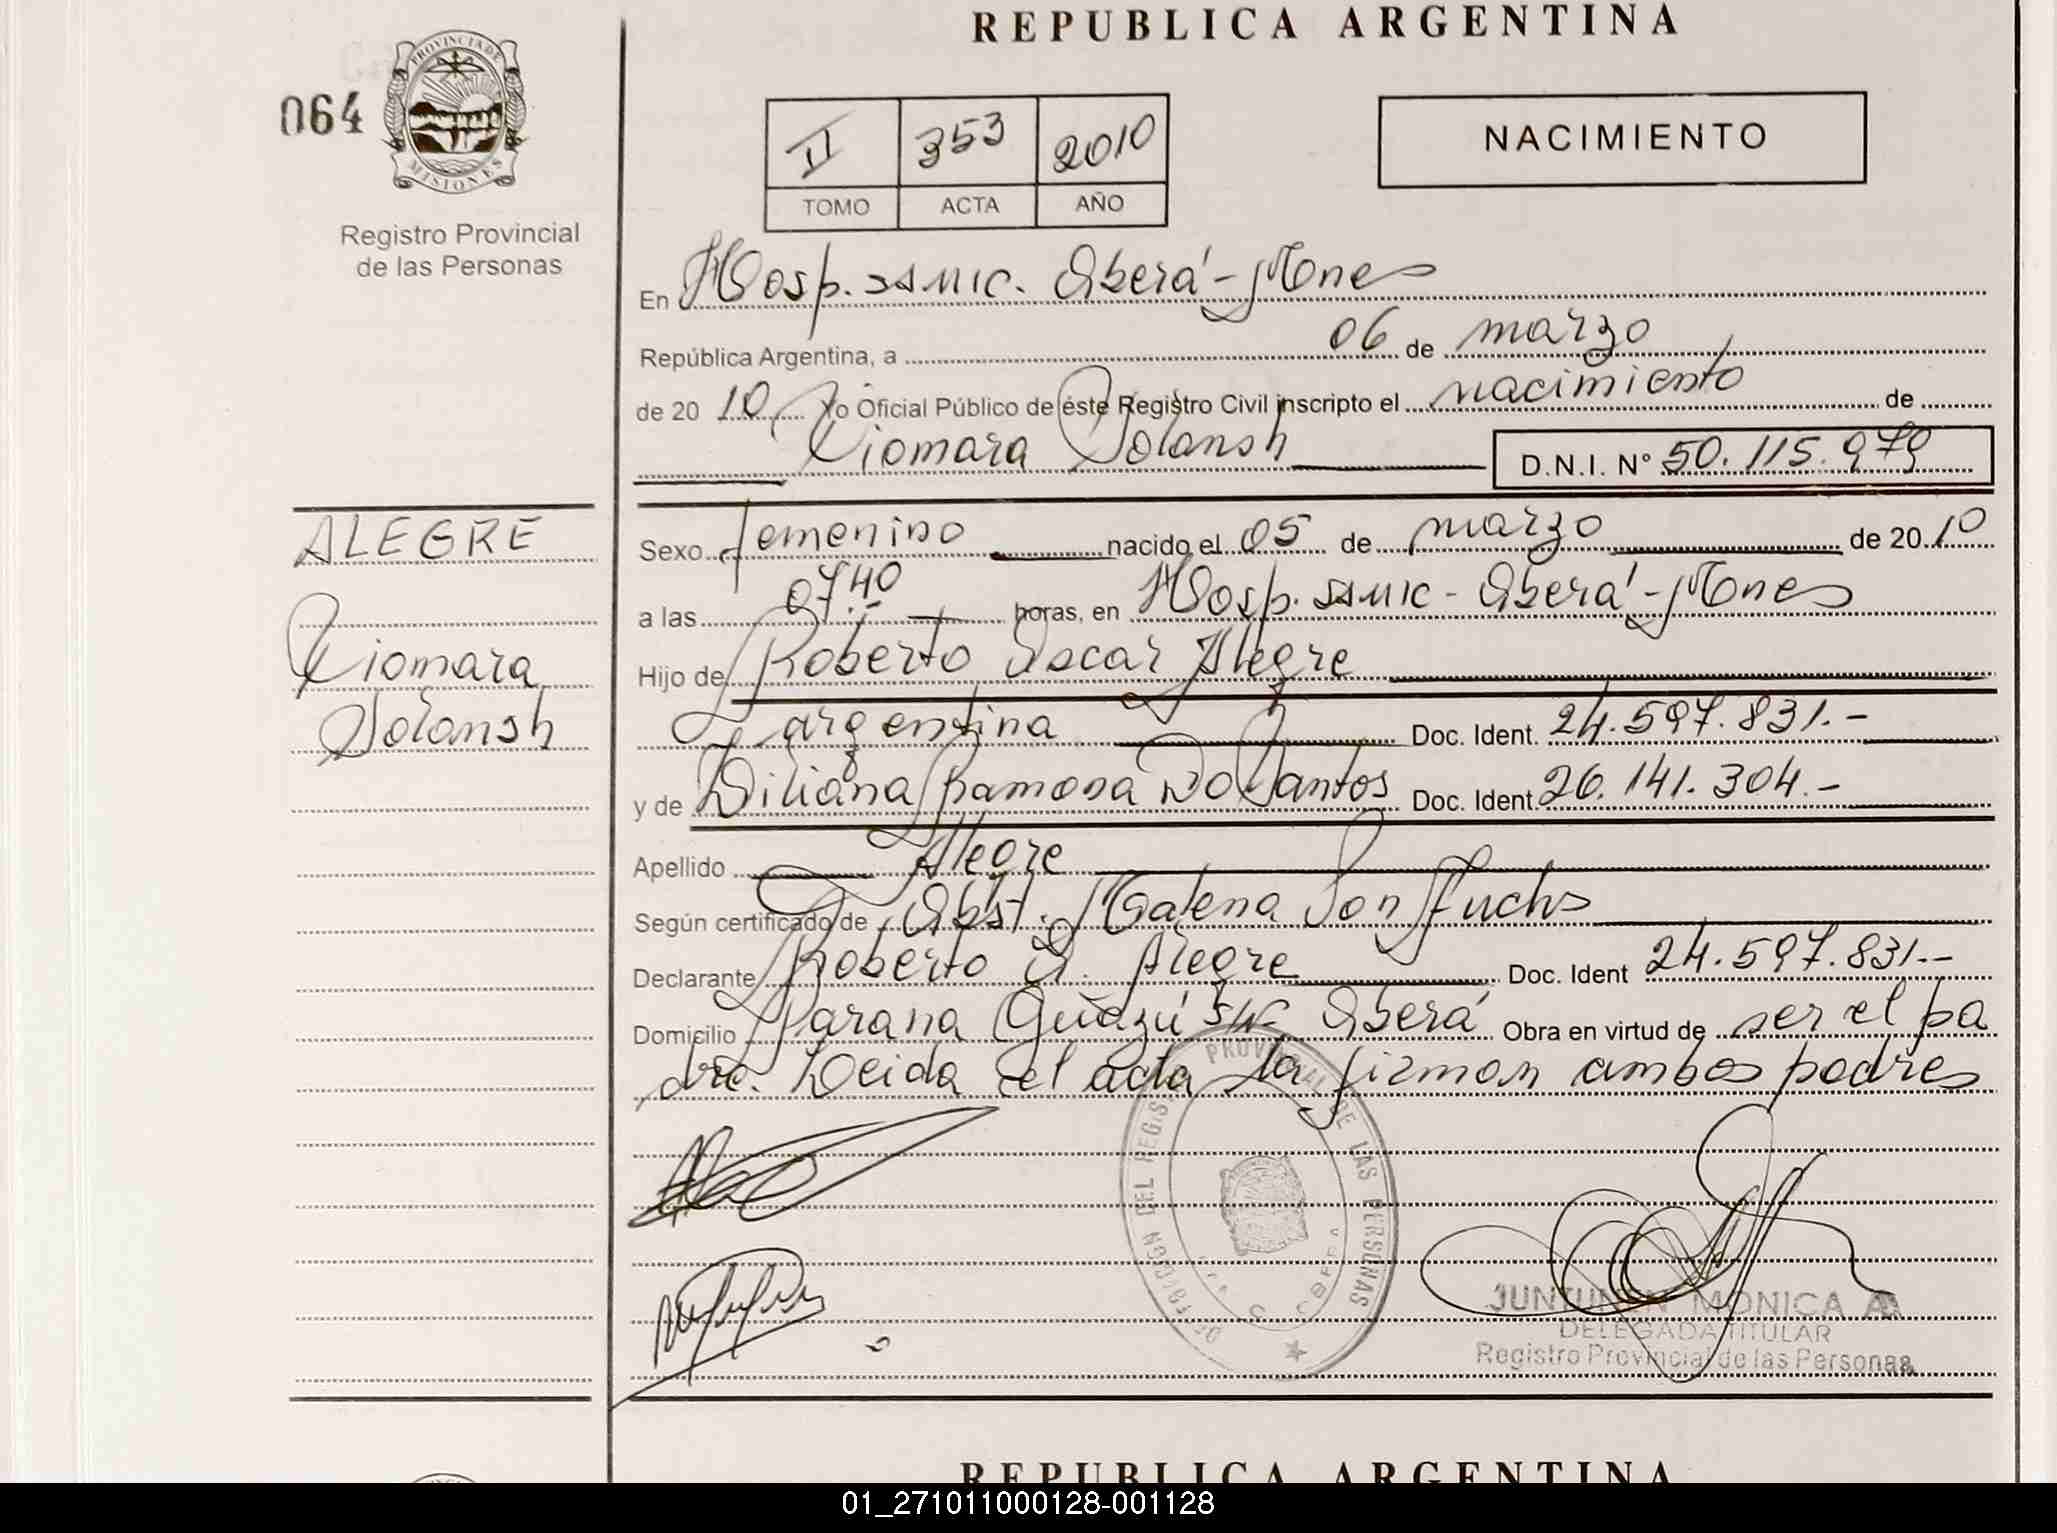 REPUBLICA ARGENTINA
064
PROVINCIA DE
MISIONES
Registro Provincial
de las Personas
II 353 2010
TOMO ACTA AÑO
NACIMIENTO
En Hosp. SAMIC. Oberá - Mnes
República Argentina, a 06 de marzo
de 20 10 Yo Oficial Público de éste Registro Civil inscripto el nacimiento de
Xiomara Solansh D.N.I. Nº 50.115.979
ALEGRE
Xiomara
Solansh
Sexo femenino nacido el 05 de marzo de 20 10
a las 07.40 horas, en Hosp. SAMIC - Oberá - Mnes
Hijo de Roberto Oscar Alegre
argentina Doc. Ident. 24.597.831.-
y de Liliana Ramona Do Santos Doc. Ident 26.141.304.-
Apellido Alegre
Según certificado de Obst. Malena Fuchs
Declarante Roberto O. Alegre Doc. Ident 24.597.831.-
Domicilio Parana Guazú S/Nº Oberá Obra en virtud de ser el pa
dre. Leida el acta la firman ambos padres
DEL REGIS PROVINCIAL DE LAS PERSONAS
OBERA
JUNTUNEN MONICA A
DELEGADA TITULAR
Registro Provincial de las Personas
REPUBLICA ARGENTINA
01_271011000128-001128